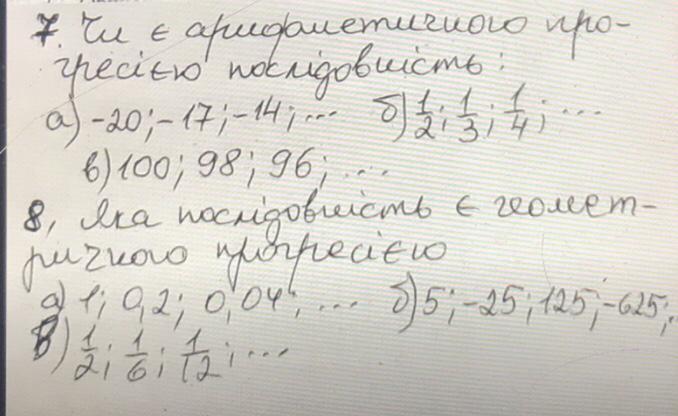 7. Чи є арифметичного про-
гресією послідовність:
а) -20; -17; -14; ... б) 1/2; 1/3; 1/4; ...
в) 100; 98; 96; ...
8, Яка послідовність є геомет-
ричного прогресією
а) 1; 0,2; 0,04; ... б) 5; -25; 125; -625;.
в) 1/2; 1/6; 1/12; ...